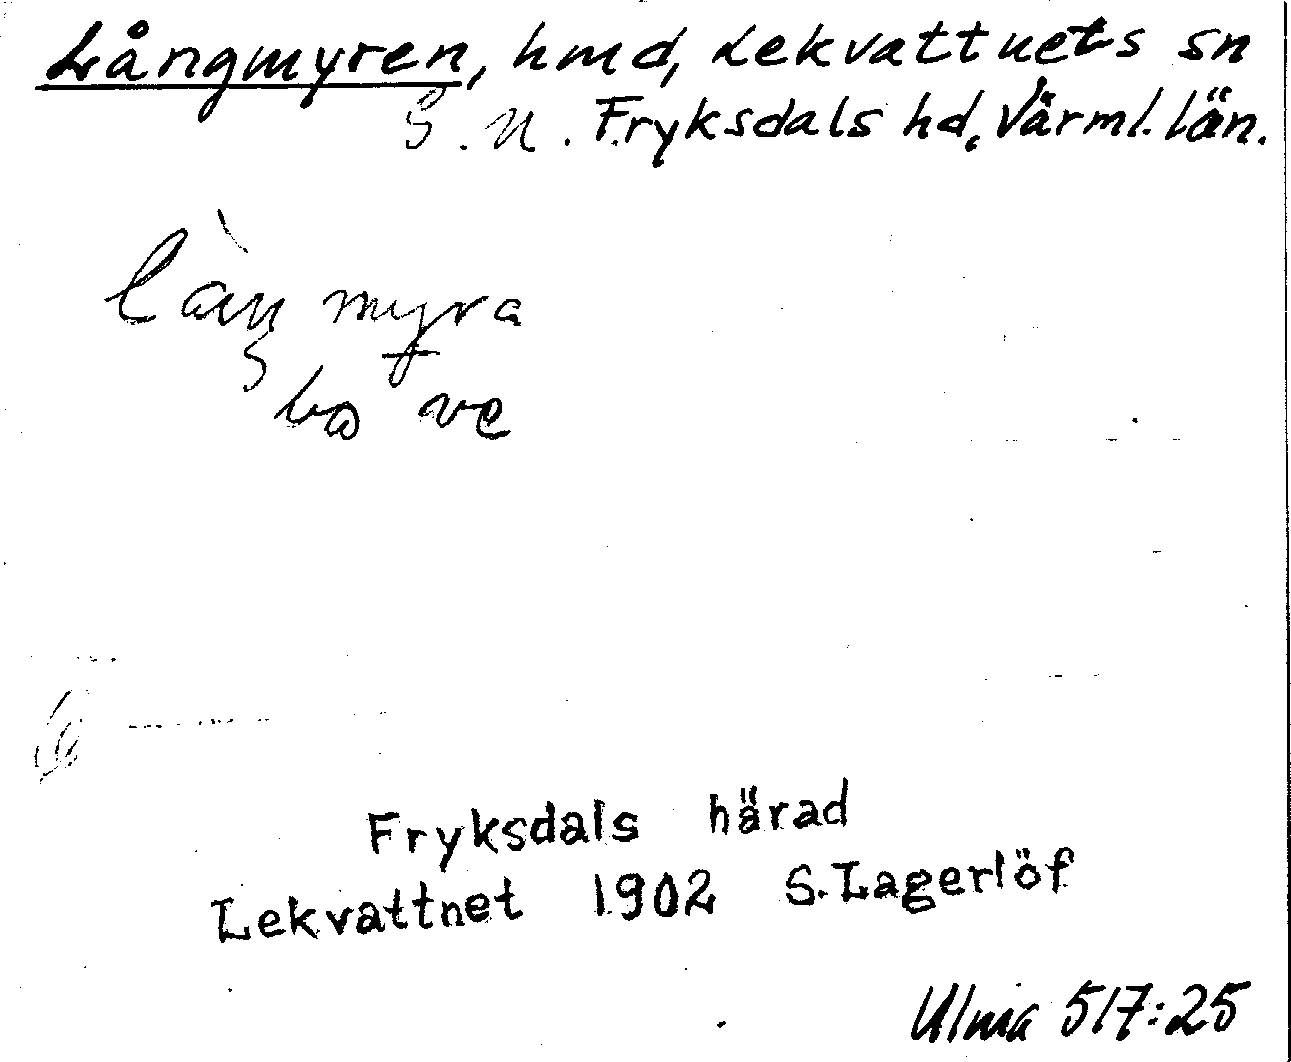 Långmyren, hmd, Lekvattnets sn
G. N. Fryksdals hd, Värml. län.
làŋ myra
Fryksdals härad
Lekvattnet 1902 S. Lagerlöf
Ulma 517:25